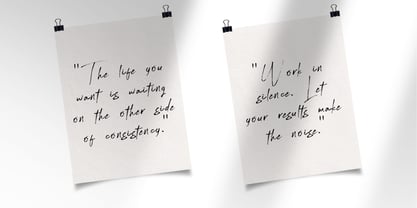 "The life you
want is waiting
on the other side
of consistency."
"Work in
silence. Let
your results make
the noise."